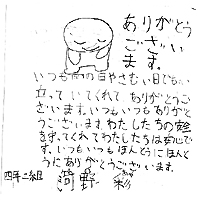 ありがとう
ござい
ます。
いつも雨の日やさむい日でも
立っていてくれて、ありがとうご
ざいます。いつもいつもありがと
うございます。わたしたちの安全
を守ってくれてわたしたちは安心で
す。いつもいつもほんとうにほんと
うにありがとうございます。
四年二組 河野 彩